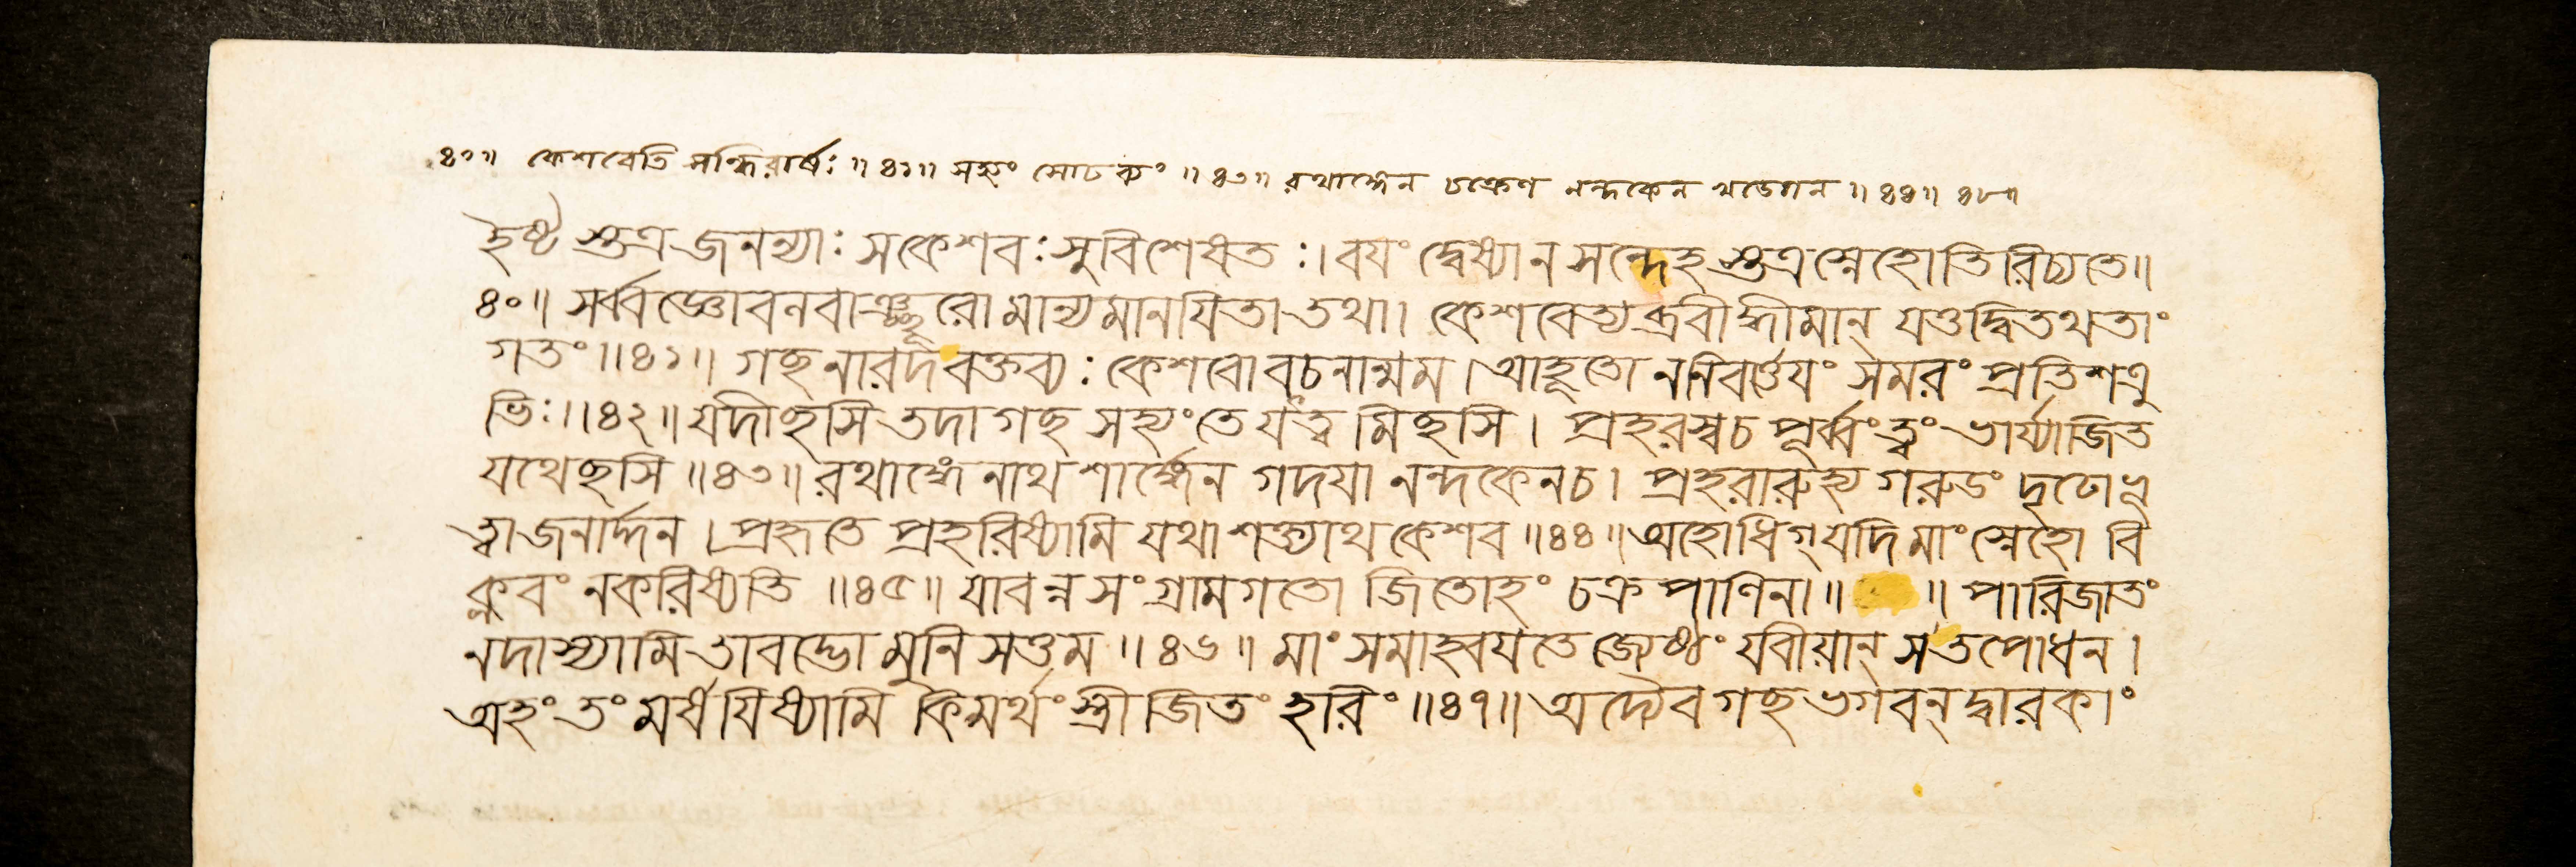 ৪০॥ কেশবেতি সন্ধিরার্ষঃ ॥৪১॥ সহ্যং সোঢব্যং ॥৪৩॥ রথাঙ্গেন চক্রেণ নন্দকেন খড্গেন ॥৪৪॥ ৪৫॥
ইষ্ট শুত্র জনন্যাঃ সকেশবঃ সুবিশেষতঃ। বয়ং দ্বেষ্যা ন সন্দেহ শুত্র স্নেহোতিরিচ্যতে॥
৪০॥ সর্ব্বজ্ঞো বনবাঞ্ছূরো মান্যমানয়িতা তথা। কেশবেত্যব্রবীদ্ধীমান্ যত্তদ্বিতথতাং
গতং ॥৪১॥ গছ নারদ বক্তব্যঃ কেশবো বচনান্মম। আহূতো ন নিবর্ত্তেয়ং সমরং প্রতি শত্রু
ভিঃ ॥৪২॥ যদীছসি তদা গছ সহ্যং তে যত্ত্বমিছসি। প্রহরস্ব চ পূর্ব্বং ত্বং ভার্য্যাজিত
যথেছসি ॥৪৩॥ রথাঙ্গেনাথ শার্ঙ্গেন গদয়া নন্দকেন চ। প্রহরারুহ্য গরুডং দৃঢো ভূ
ত্বা জনার্দ্দন। প্রহৃতে প্রহরিষ্যামি যথাশক্ত্যাথ কেশব ॥৪৪॥ অহো ধিগ্ যদি মাং স্নেহো বি
ক্লবং ন করিষ্যতি ॥৪৫॥ যাবন্ন সংগ্রামগতো জিতোহং চক্রপাণিনা॥ ॥ পারিজাতং
ন দাস্যামি তাবদ্ভো মুনিসত্তম ॥৪৬॥ মাং সমাহ্বয়তে জ্যেষ্ঠং যবীয়ান্ স তপোধন।
অহং তং মর্ষয়িষ্যামি কিমর্থং স্ত্রীজিতং হরিং ॥৪৭॥ অদ্যৈব গছ ভগবন্ দ্বারকাং